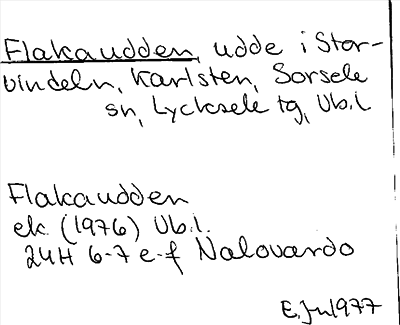 Flakaudden, udde i Stor-
vindeln, Karlsten, Sorsele
sn, Lycksele tg, Vb.l
Flakaudden
ek. (1976) Vb.l.
24H 6-7 e-f Nalovardo
E.Ju 1977